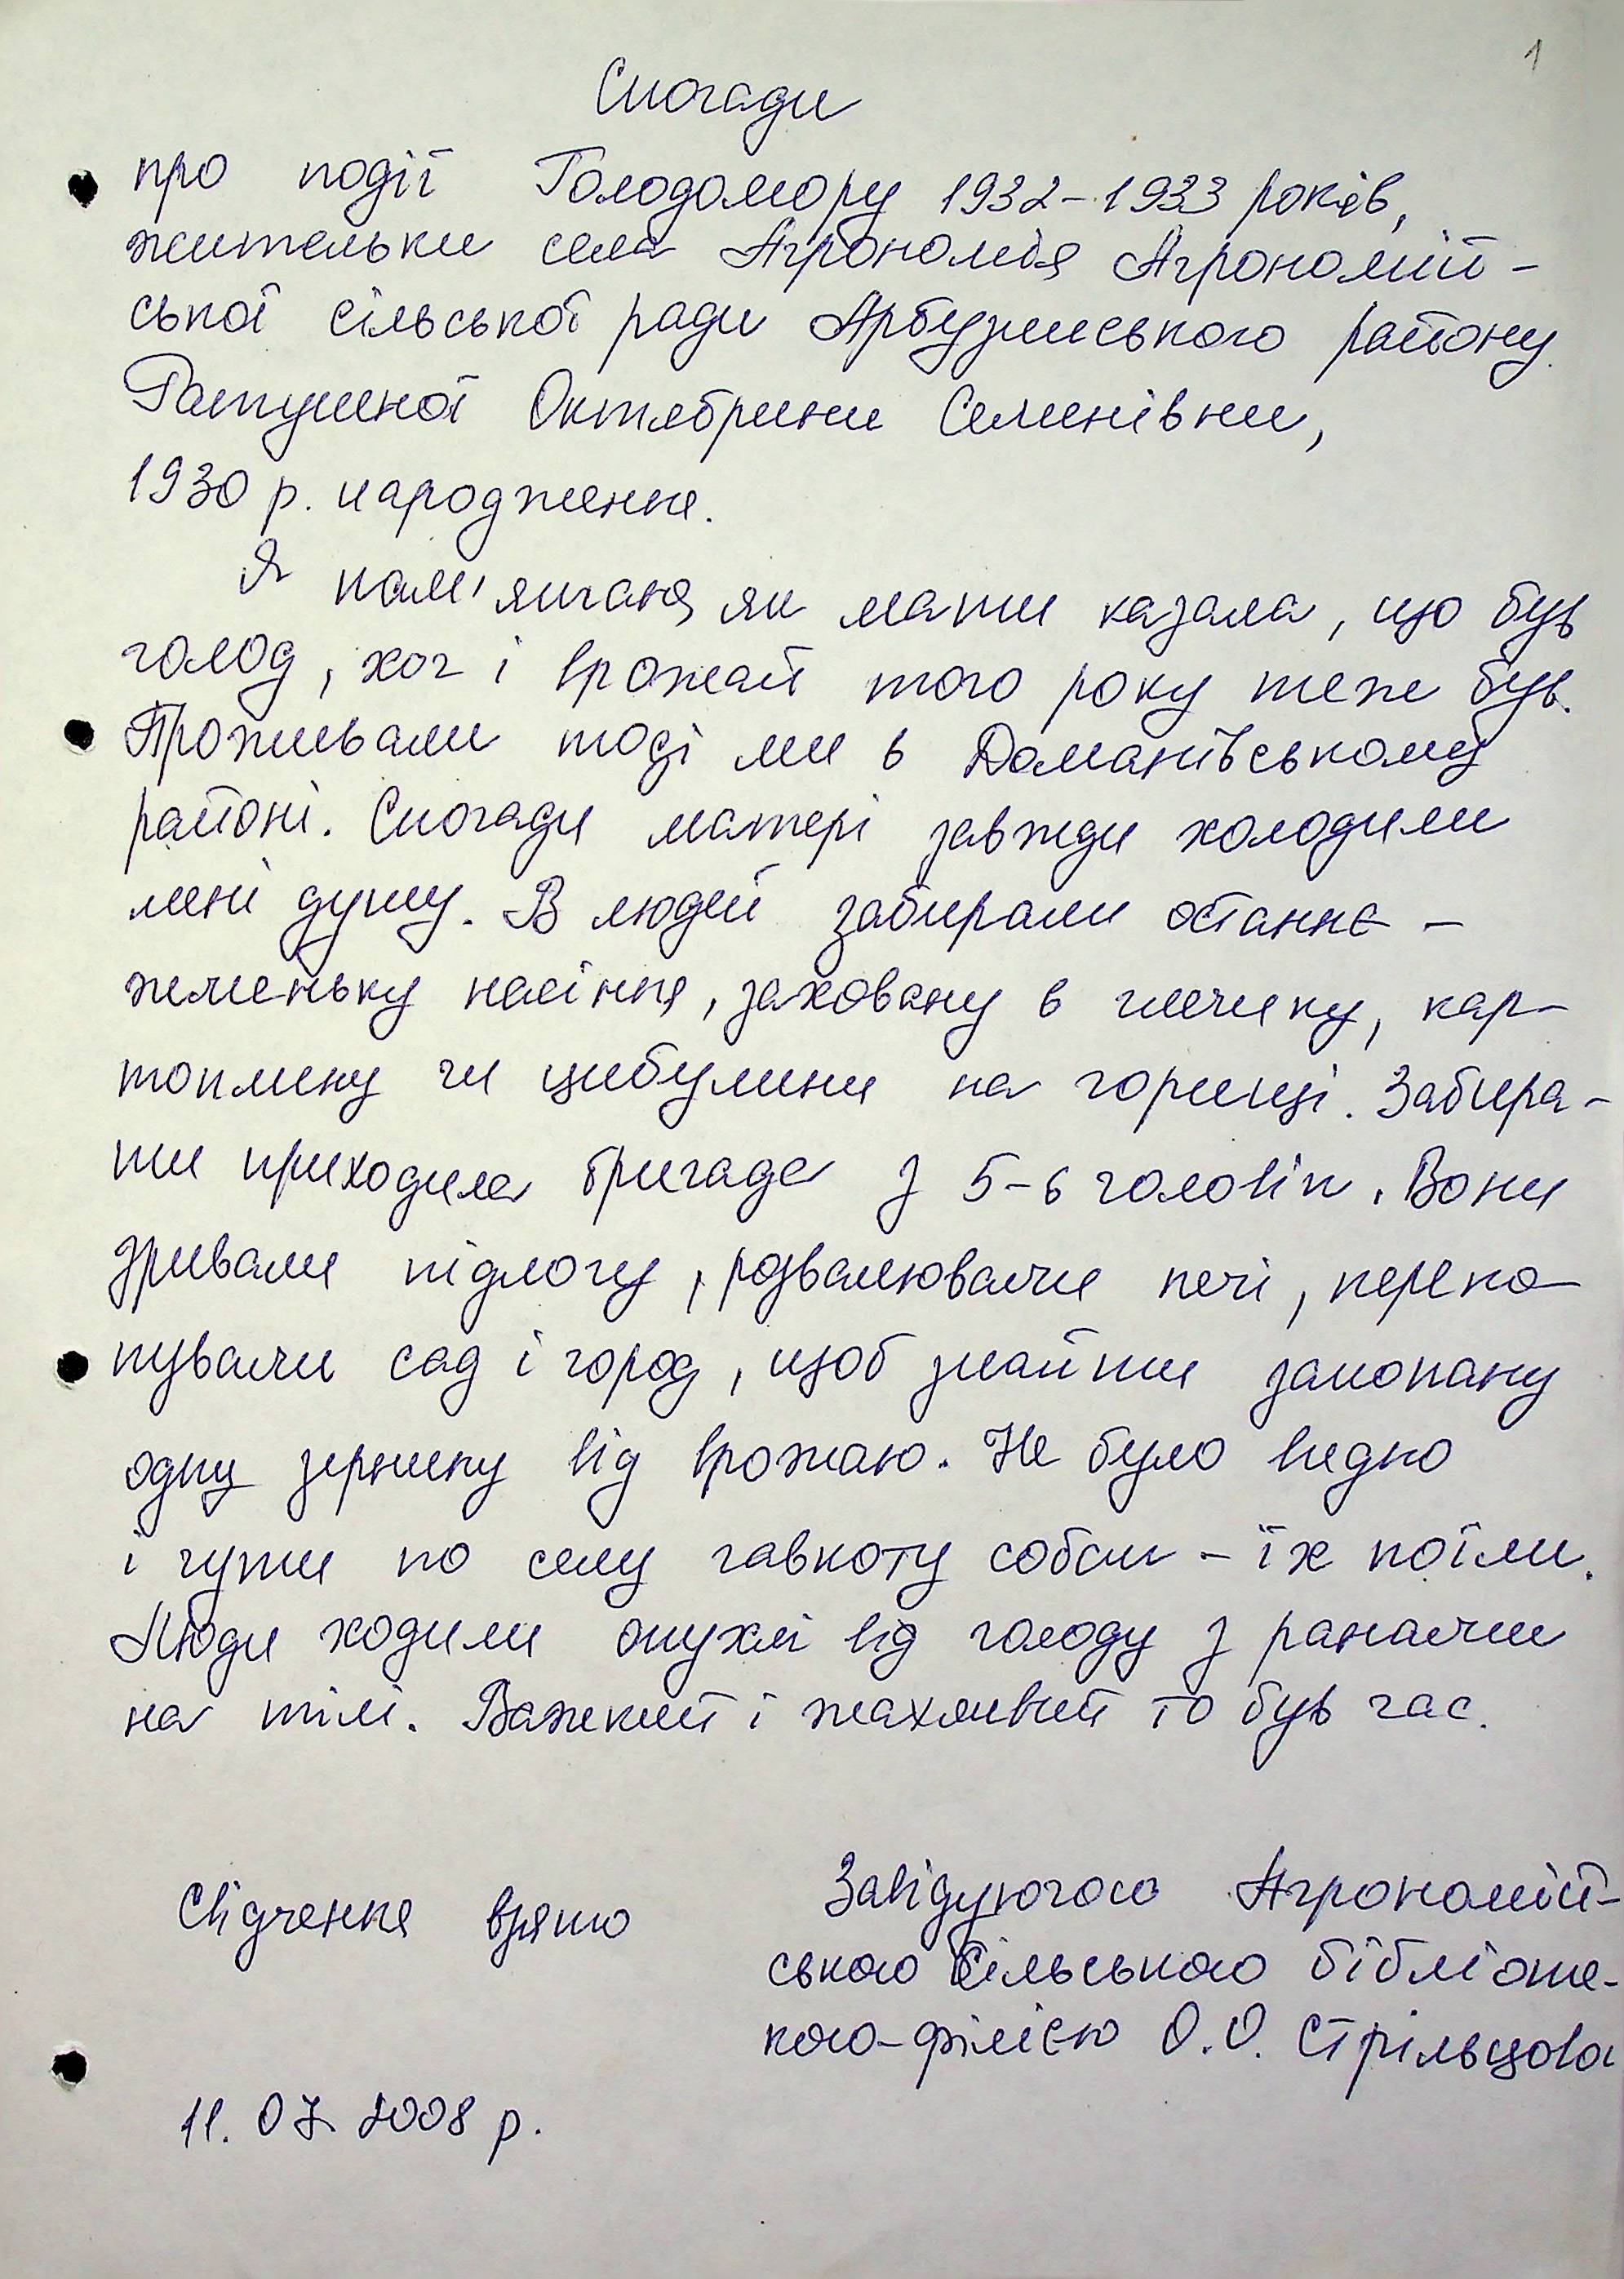 1
Спогади
про події Голодомору 1932-1933 років,
жительки села Агрономія Агрономій-
ської сільської ради Арбузинського району
Ратушної Октябрини Семенівни,
1930 р. народження.
Я пам'ятаю, як мати казала, що був
голод, хоч і врожай того року теж був.
Проживали тоді ми в Доманівському
районі. Спогади матері завжди холодили
мені душу. В людей забирали останнє -
жменьку насіння, заховану в глечику, кар-
топлину чи цибулини на горищі. Забира-
ти приходила бригада з 5-6 чоловік. Вони
зривали підлогу, розвалювали печі, переко-
пували сад і город, щоб знайти закопану
одну зернину від врожаю. Не було видно
і чути по селу гавкоту собак - їх поїли.
Люди ходили опухлі від голоду з ранами
на тілі. Важкий і жахливий то був час.
Свідчення взято
Завідуючою Агрономій-
ською сільською бібліоте-
кою-філією О.О. Стрільцова
11.07.2008 р.